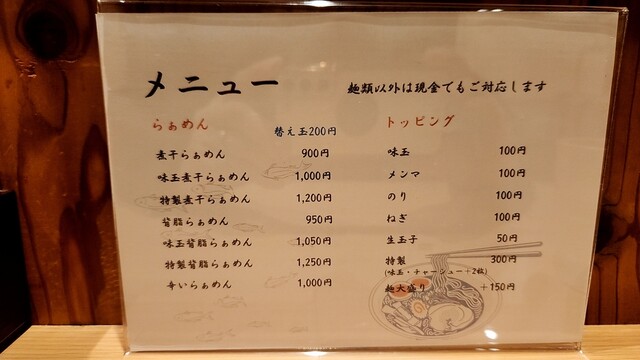 メニュー
麺類以外は現金でもご対応します
らぁめん
替え玉200円
煮干らぁめん 900円
味玉煮干らぁめん 1,000円
特製煮干らぁめん 1,200円
背脂らぁめん 950円
味玉背脂らぁめん 1,050円
特製背脂らぁめん 1,250円
辛いらぁめん 1,000円
トッピング
味玉 100円
メンマ 100円
のり 100円
ねぎ 100円
生玉子 50円
特製 300円
(味玉・チャーシュー+2枚)
麺大盛り +150円